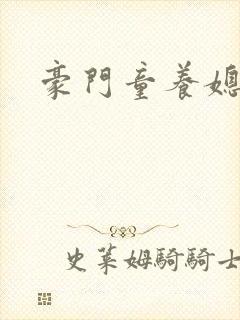 豪門童養媳
史萊姆騎騎士